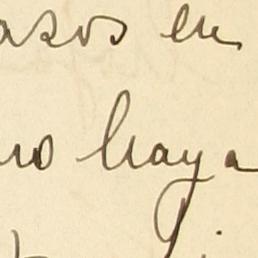 asos en
no haya